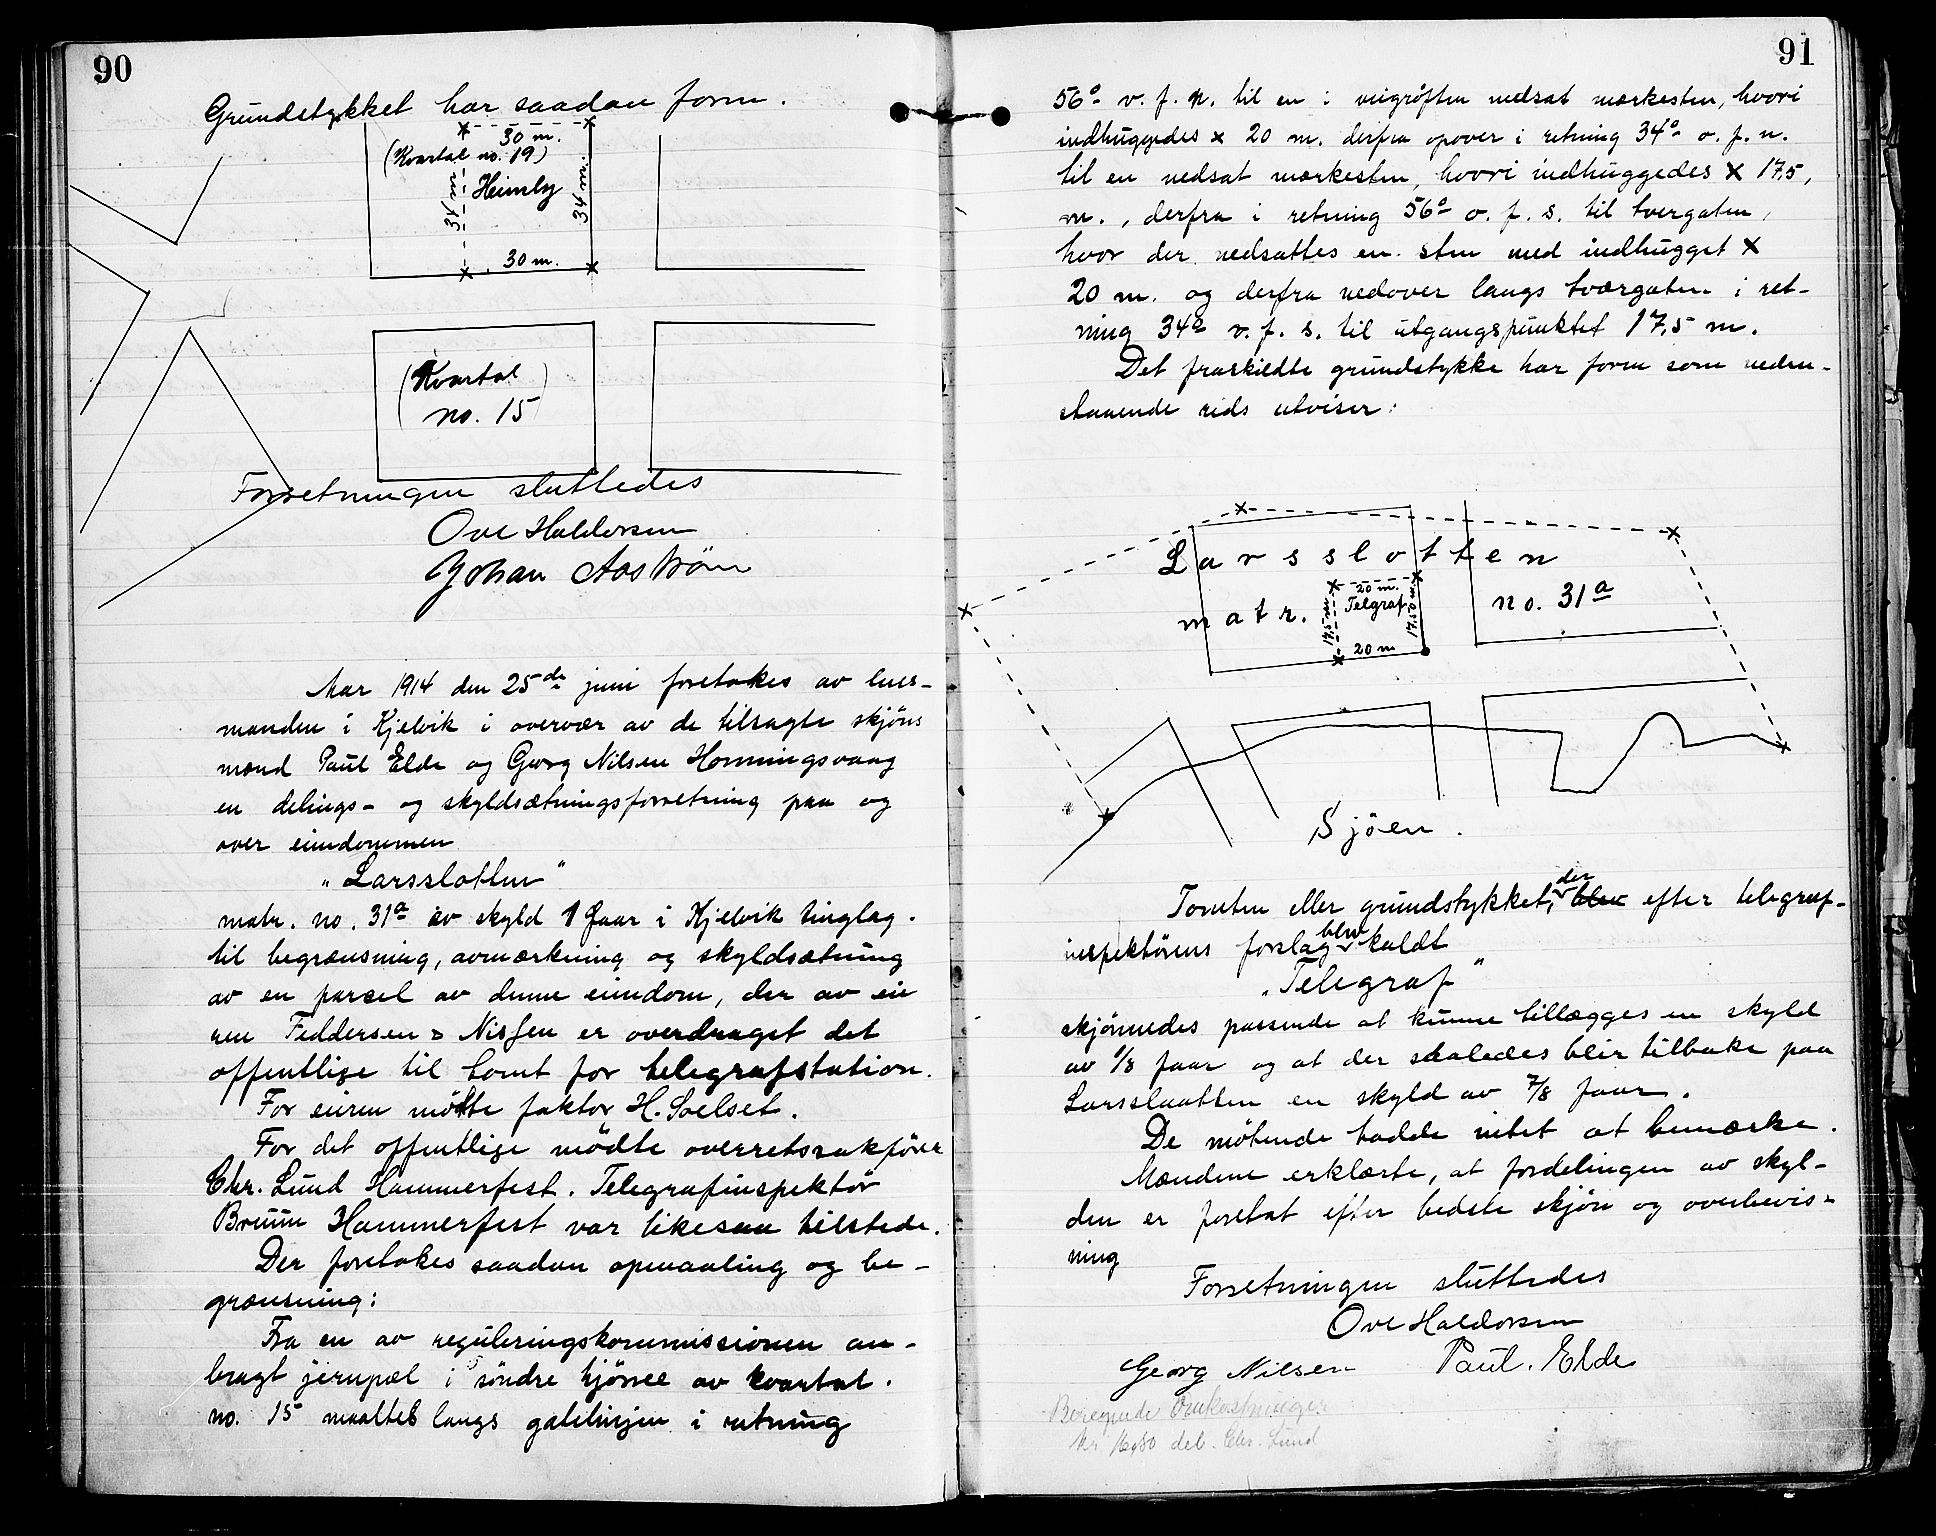 90
Grundstykket har saadan form.
30 m.
(Kvartal no. 19)
Heimly
31 m.
34 m.
30 m.
(Kvartal
no. 15)
Forretningen sluttedes
Ove Haldorsen
Johan Aastrøm
Aar 1914 den 25de juni foretokes av lens-
manden i Kjelvik i overvær av de tilsagte skjöns
mænd Paul Elde og Georg Nilsen Honningsvaag
en delings- og skyldsætningsforretning paa og
over eiendommen
"Larsslotten"
matr. no. 31a av skyld 1 faar i Kjelvik tinglag.
til begrænsning, avmærkning og skyldsætning
av en parsel av denne eiendom, der av eie
ren Feddersen & Nissen er overdraget det
offentlige til tomt for telegrafstation.
For eieren mötte faktor H. Soelset.
For det offentlige mödte overretssakförer
Chr. Lund Hammerfest. Telegrafinspektör
Bruun Hammerfest var likesaa tilstede.
Der foretokes saadan opmaaling og be-
grænsning:
Fra en av reguleringskommissionen an-
bragt jernpæl i söndre hjörne av kvartal.
no. 15 maaltes langs gatelinjen i retning
91
56° v. f. n. til en i veigröften nedsat merkesten, hvori
indhuggedes x 20 m. derfra opover i retning 34° o. f. n.
til en nedsat merkesten, hvori indhuggedes x 17,5,
m., derfra i retning 56° o. f. s. til tvergaten,
hvor der nedsattes en sten med indhugget x
20 m. og derfra nedover langs tværgaten i ret-
ning 34° v. f. s. til utgangspunktet 17,5 m.
Det fraskildte grundstykke har form som neden-
staaende rids utviser:
Larsslotten
matr.
no. 31a
20 m.
Telgraf
17,5 m
17,50 m.
20 m
Sjöen.
Tomten eller grundstykket, der blev efter telegraf-
inspektörens forslag blev kaldt
"Telegraf"
skjönnedes passende at kunne tillægges en skyld
av 1/8 faar og at der saaledes blir tilbake paa
Larsslaatten en skyld av 7/8 faar.
De mötende hadde intet at bemærke.
Mændene erklærte, at fordelingen av skyl-
den er foretat efter bedste skjön og overbevis-
ning
Forretningen sluttedes
Ove Haldorsen
Georg Nilsen Paul. Elde
Beregnede Omkostninger
deb. Chr. Lund